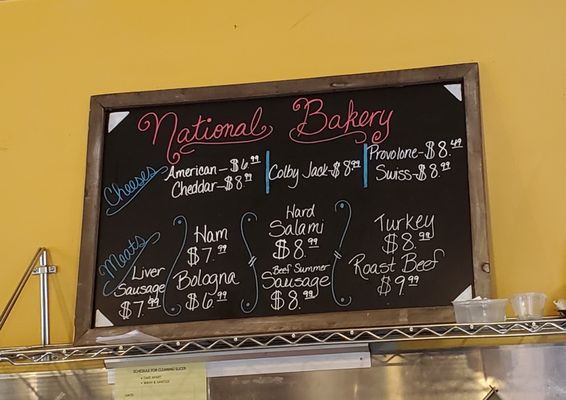 National Bakery
Cheeses
American - $6.99
Cheddar - $8.99
Colby Jack - $8.99
Provolone - $8.49
Swiss - $8.99
Meats
Liver
Sausage
$7.49
Ham
$7.99
Bologna
$6.99
Hard
Salami
$8.99
Beef Summer
Sausage
$8.99
Turkey
$8.99
Roast Beef
$9.99
SCHEDULE FOR CLEANING SLICER
• TAKE APART
• WASH & SANITIZE
DATE